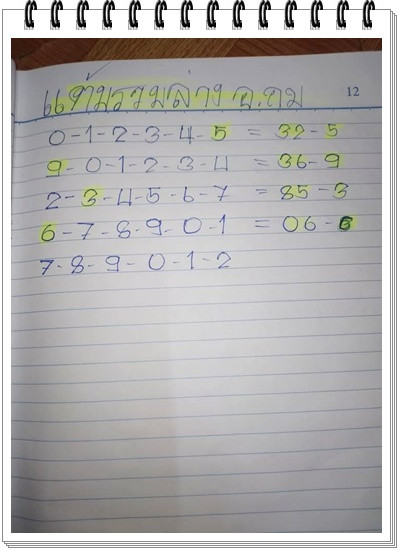 แต้มรวมล่าง อ.ถม
12
0-1-2-3-4-5 = 32-5
9-0-1-2-3-4 = 36-9
2-3-4-5-6-7 = 85-3
6-7-8-9-0-1 = 06-6
7-8-9-0-1-2